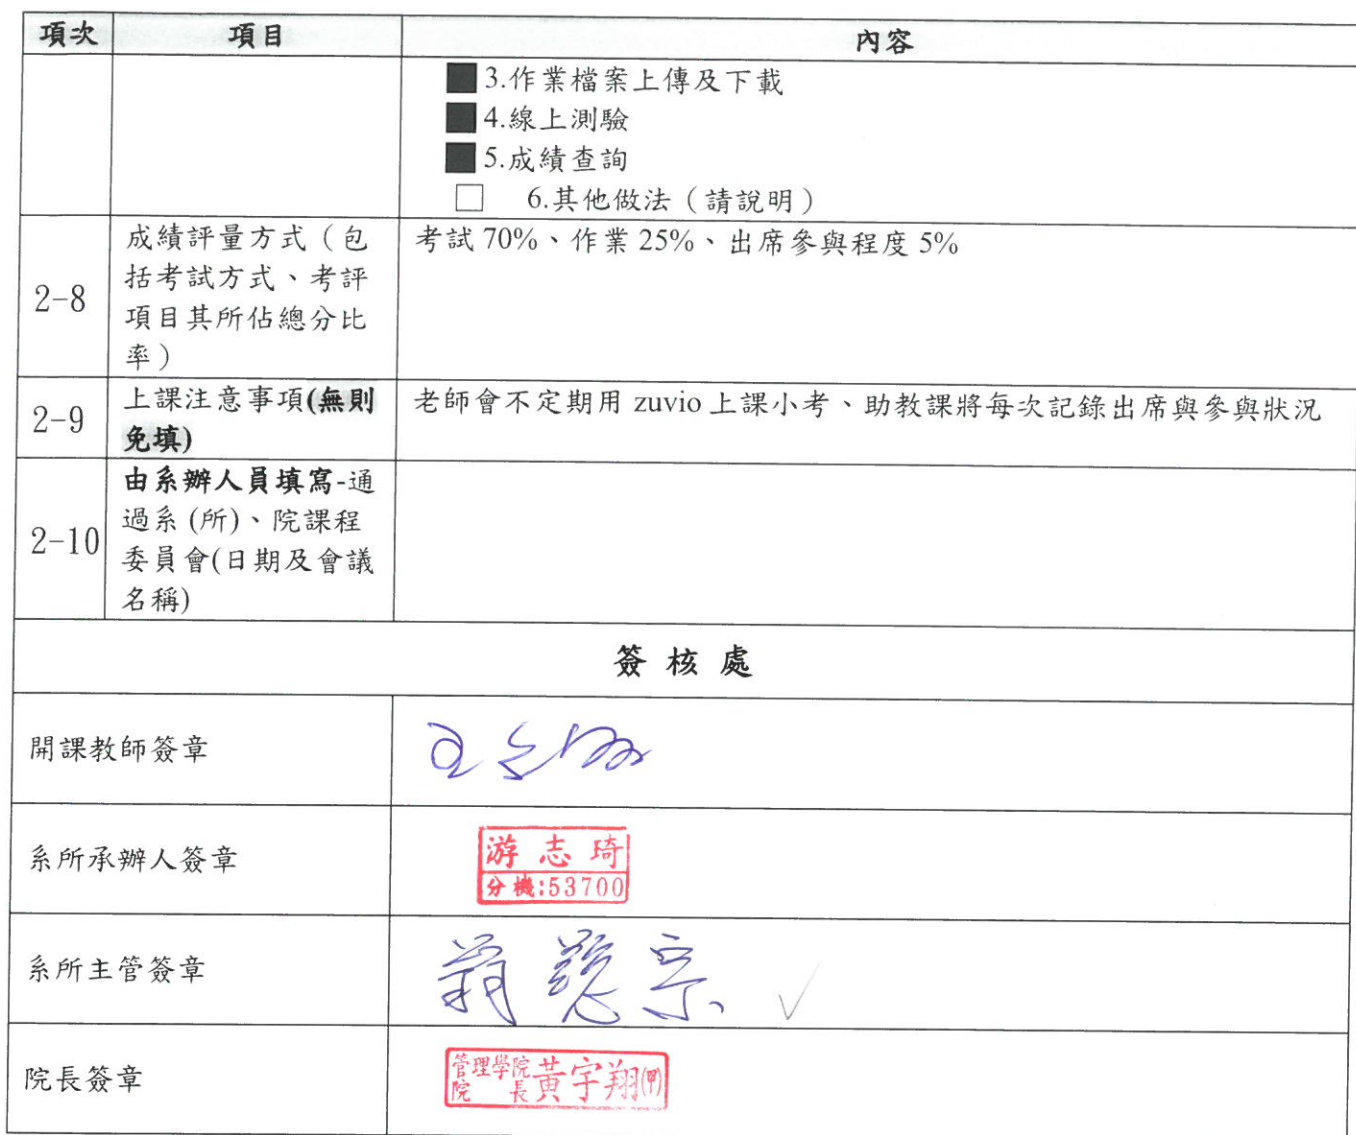 項次 項目 內容
■ 3.作業檔案上傳及下載
■ 4.線上測驗
■ 5.成績查詢
□ 6.其他做法（請說明）
2-8 成績評量方式（包括考試方式、考評項目其所佔總分比率） 考試 70%、作業 25%、出席參與程度 5%
2-9 上課注意事項(無則免填) 老師會不定期用 zuvio 上課小考、助教課將每次記錄出席與參與狀況
2-10 由系辦人員填寫-通過系 (所)、院課程委員會(日期及會議名稱)
簽 核 處
開課教師簽章
系所承辦人簽章 游志琦
分機:53700
系所主管簽章
院長簽章 管理學院院長 黃宇翔(甲)